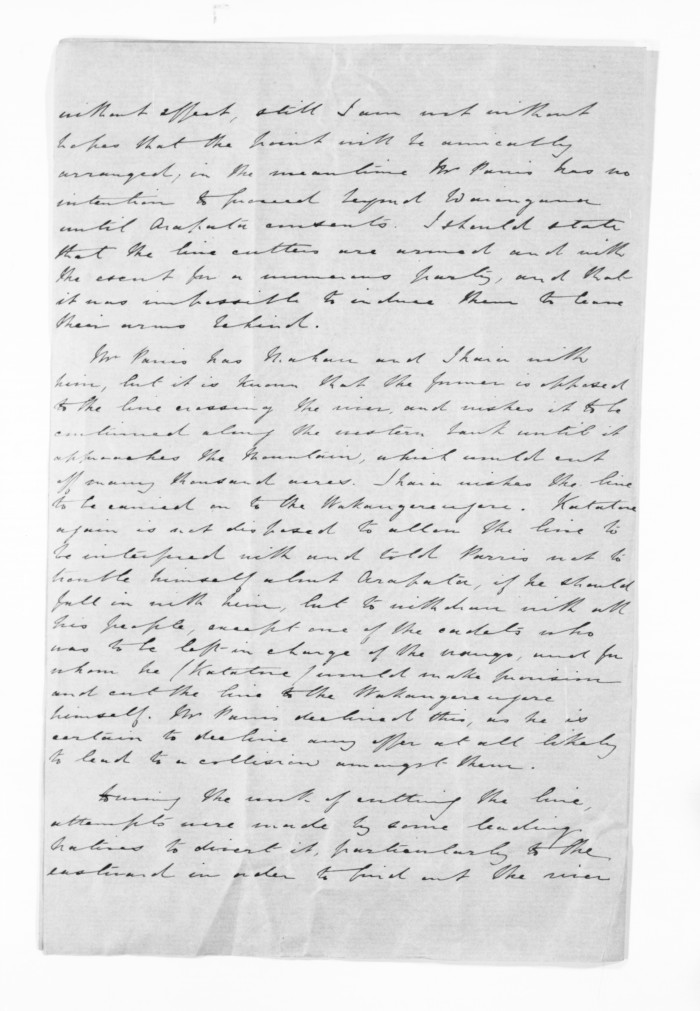 without effect, still I am not without
hopes that the point will be amicably
arranged; in the meantime Mr Parris has no
intention to proceed beyond
until Arapata consents. I should state
that the line cutters are armed and with
the escort for a numerous party, and that
it was impossible to induce them to leave
their arms behind.
Mr Parris has and Ihaia with
him, but it is known that the former is opposed
to the line crossing the river, and wishes it to be
continued along the western bank until it
approaches the Mountain, which would cut
off many thousand acres. Ihaia wishes the line
to be carried on to the Wakangerengere. Katatore
again is not disposed to allow the line to
be interfered with and told Parris not to
trouble himself about Arapata, if he should
fall in with him, but to withdraw with all
his people, except one of the cadets who
was to be left in charge of the and for
whom he (Katatore) would make provision
and cut the line to the Wakangerengere
himself. Mr Parris declined this, as he is
certain to decline any offer at all likely
to lead to a collision amongst them.
During the work of cutting the line,
attempts were made by some leading
Natives to divert it, particularly to the
eastward in order to find out the river